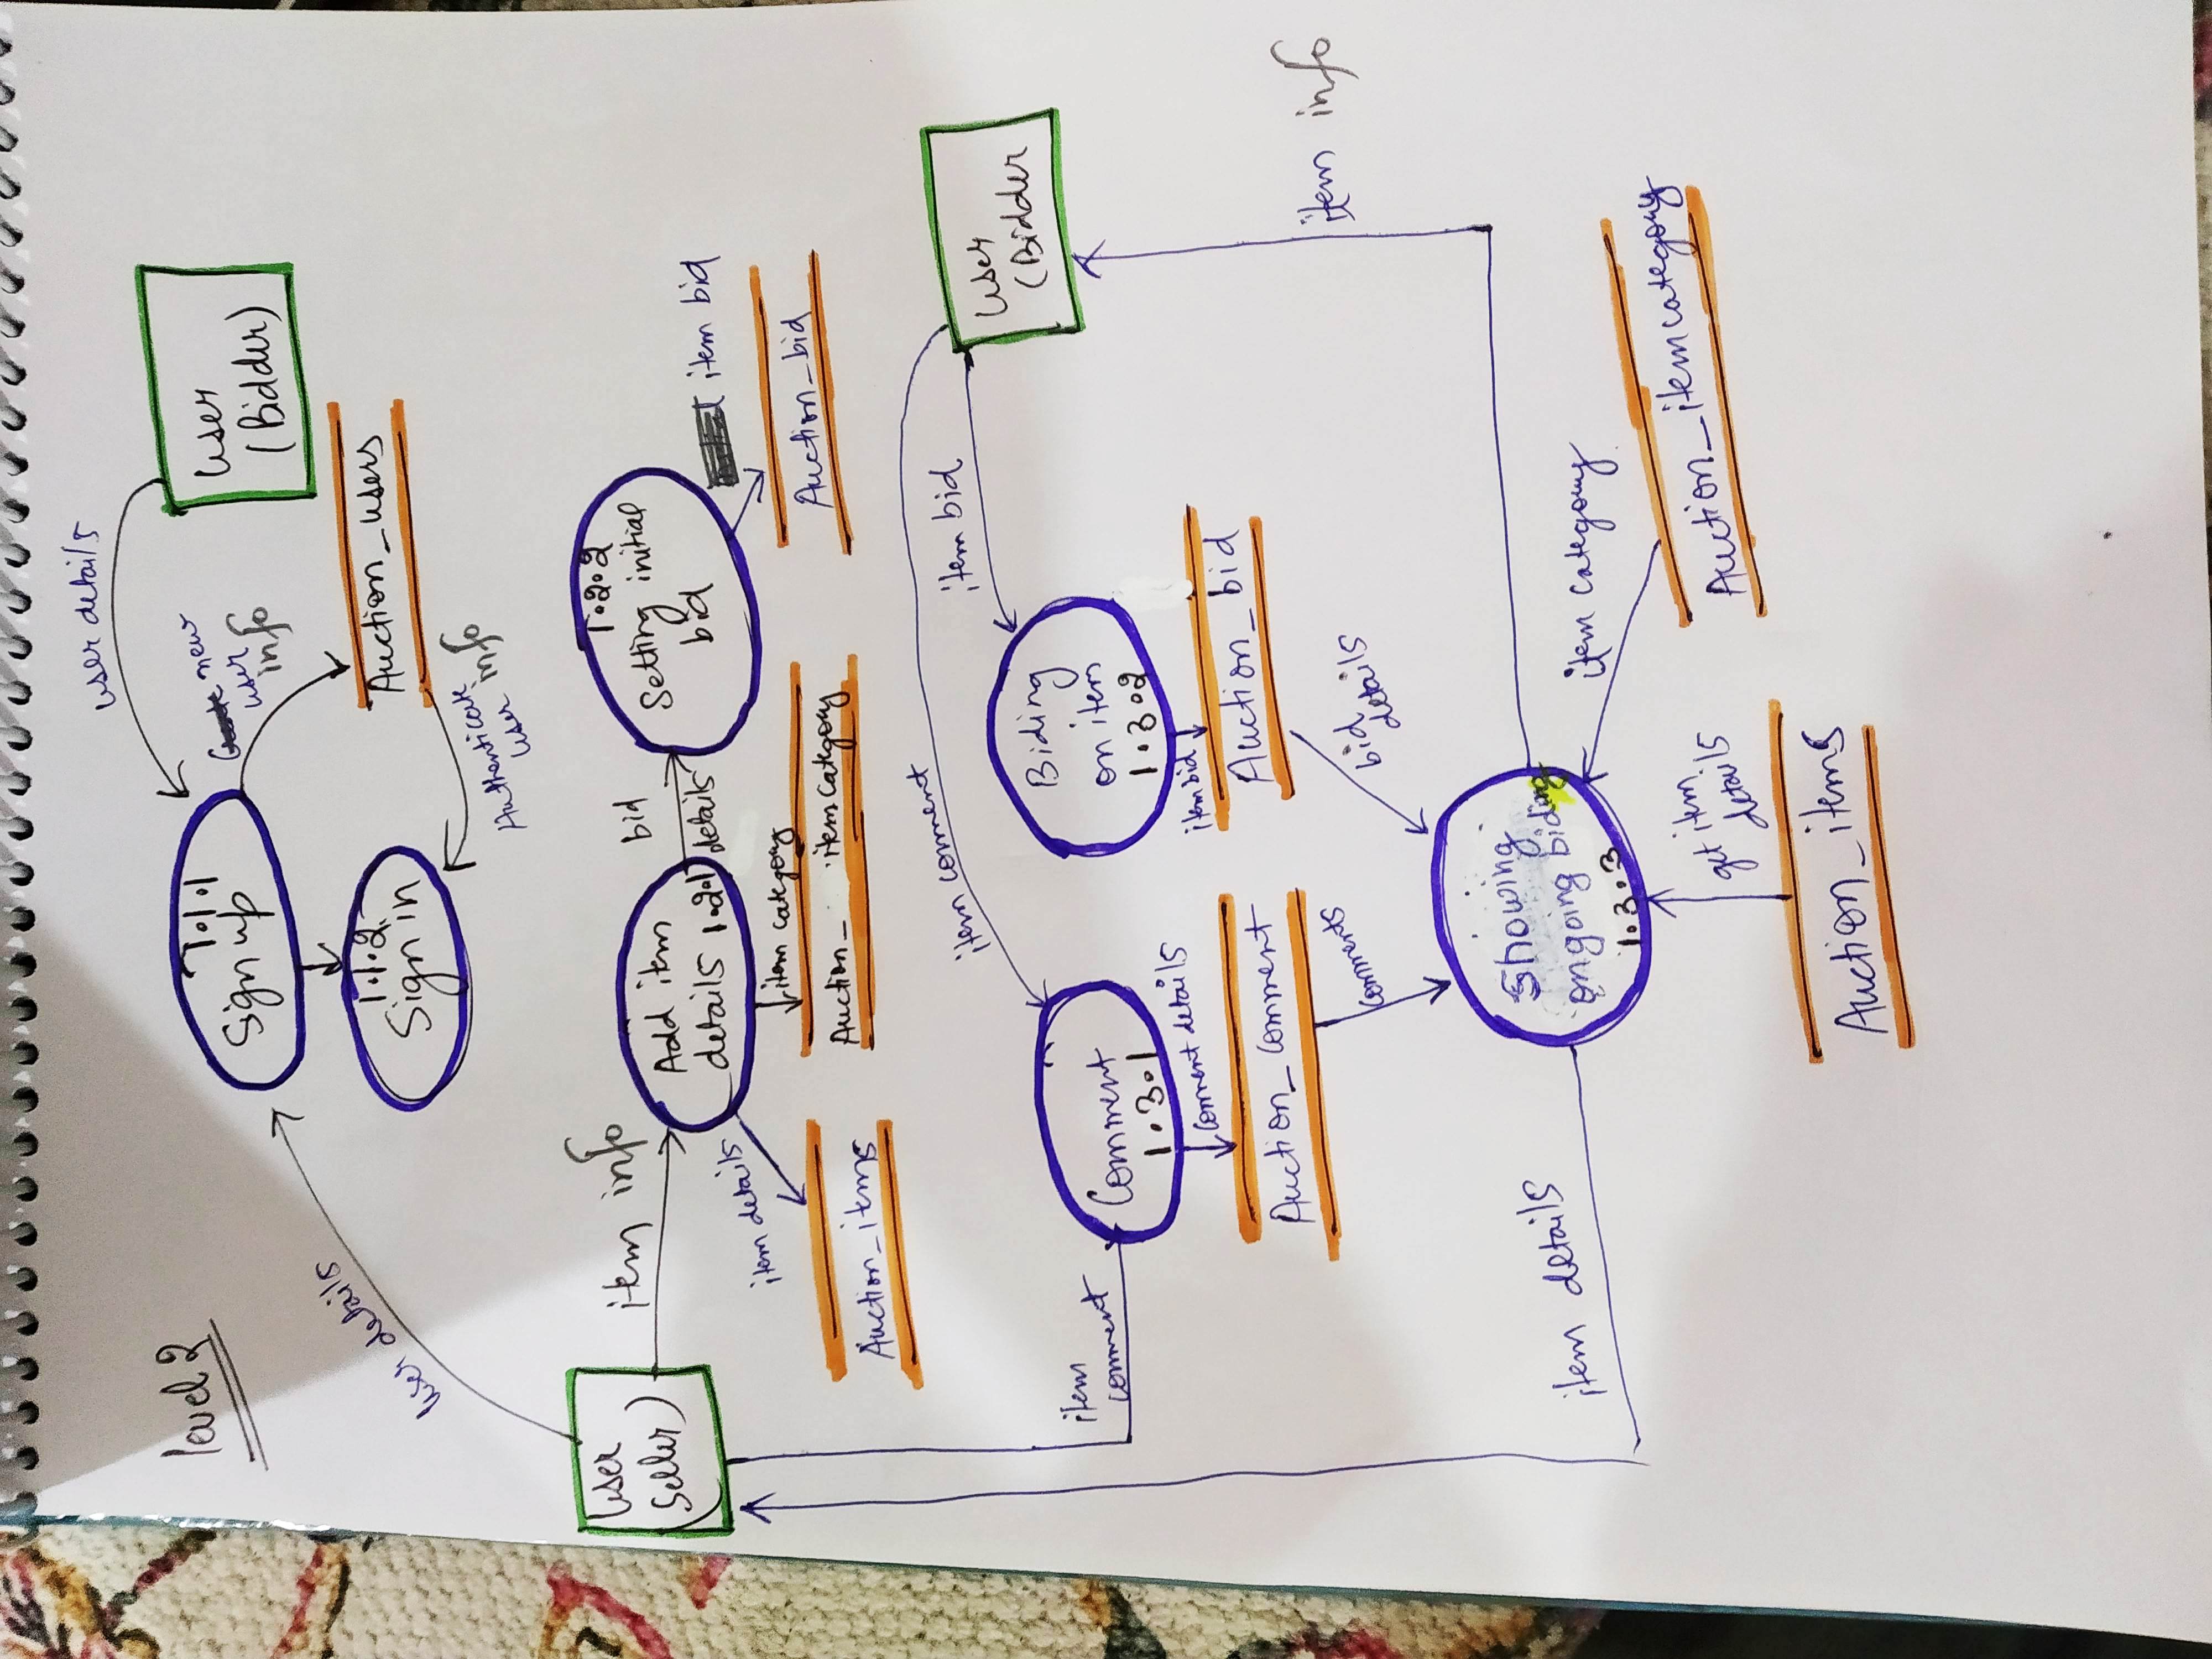 level 2
user details
1.1.1
Sign up
new
user
info
User
(Bidder)
user details
1.1.2
Sign in
Auction_users
Authenticate
user info
User
(Seller)
item info
Add item
details 1.2.1
bid
details
1.2.2
Setting initial
bid
item bid
item details
item category
Auction_items
Auction_ itemcategory
Auction_bid
item comment
item bid
User
(Bidder
item
comment
Comment
1.3.1
Biding
on item
1.3.2
comment details
item bid
Auction_comment
Auction_bid
comments
bid
details
item info
Showing
ongoing biding
1.3.3
item details
item category
Auction_itemcategory
get item
details
Auction_items